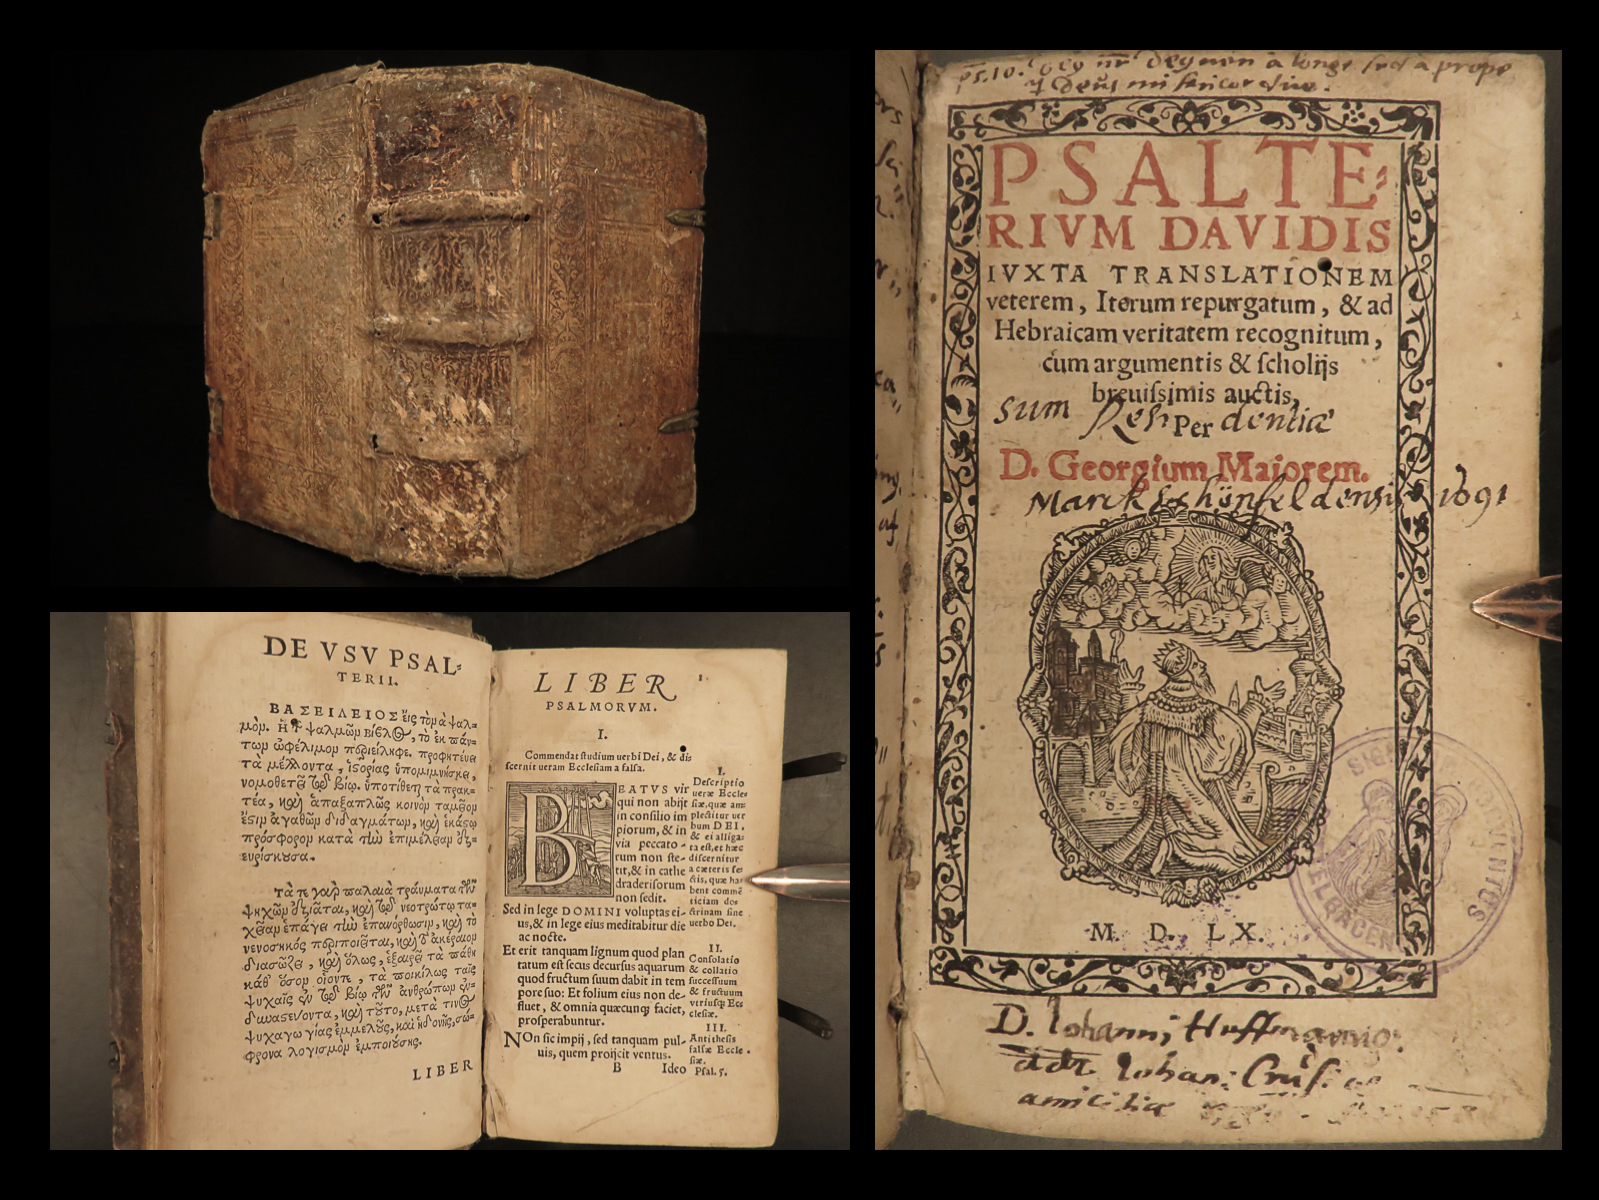 PSALTE-
RIVM DAVIDIS
IVXTA TRANSLATIONEM
veterem, Iterum repurgatum, & ad
Hebraicam veritatem recognitum,
cum argumentis & scholijs
breuissimis auctis,
sum
Per
D. Georgium Maiorem.
1691
M. D. LX.
D. Iohanni Huffmanno
amicitiæ
DE VSV PSAL-
TERII.
ΒΑΣΕΙΛΕΙΟΣ εἰς τὸν ἀ ψαλ-
μὸν. Ἡ ψαλμῶν βίβλος, τὸ ἐκ πάν-
των ὠφέλιμον περιείληφε. προφητεύει
τὰ μέλλοντα, ἱστορίας ὑπομιμνήσκει,
νομοθετεῖ τῷ βίῳ. ὑποτίθεται τὰ πρακ-
τέα, καὶ ἁπαξαπλῶς κοινὸν ταμεῖον
ἐστὶν ἀγαθῶν διδαγμάτων, καὶ ἑκάστῳ
πρόσφορον κατὰ τὴν ἐπιμέλειαν
εὑρίσκουσα.
Τά τε γὰρ παλαιὰ τραύματα τῶν
ψυχῶν ἐξιᾶται, καὶ τῷ νεοτρώτῳ τα-
χεῖαν ἐπάγει τὴν ἐπανόρθωσιν, καὶ τὸ
νενοσηκός περιποιεῖται, καὶ τὸ ἀκέραιον
διασώζει, καὶ ὅλως, ἐξαιρεῖ τὰ πάθη
καθ' ὅσον οἷόντε, τὰ ποικίλως ταῖς
ψυχαῖς ἐν τῷ βίῳ τῶν ἀνθρώπων ἐν-
δυναστεύοντα, καὶ τοῦτο, μετὰ τινὸς
ψυχαγωγίας ἐμμελοῦς, καὶ ἡδονῆς, σώ-
φρονα λογισμὸν ἐμποιούσης.
LIBER
LIBER
PSALMORVM.
1
I.
Commendat studium uerbi Dei, & dis
scernit ueram Ecclesiam a falsa.
BEATVS vir
qui non abijt
in consilio im
piorum, & in
via peccato-
rum non ste-
tit, & in cathe
dra derisorum
non sedit.
Sed in lege DOMINI voluptas ei-
us, & in lege eius meditabitur die
ac nocte.
Et erit tanquam lignum quod plan
tatum est secus decursus aquarum
quod fructum suum dabit in tem
pore suo: Et folium eius non de-
fluet, & omnia quæcunque faciet,
prosperabuntur.
NOn sic impij, sed tanquam pul-
uis, quem proijcit ventus.
B Ideo
I.
Descriptio
ueræ Eccle
siæ, quæ am
plectitur uer
bum DEI,
& ei alliga
ta est, et hæc
discernitur
a cæteris se
ctis, quæ ha
bent commē
ticiam do
ctrinam sine
uerbo Dei.
II.
Consolatio
& collatio
successuum
& fructuum
utriusque Ec
clesiæ.
III.
Antithesis
falsæ Eccle
siæ.
Psal. 5.